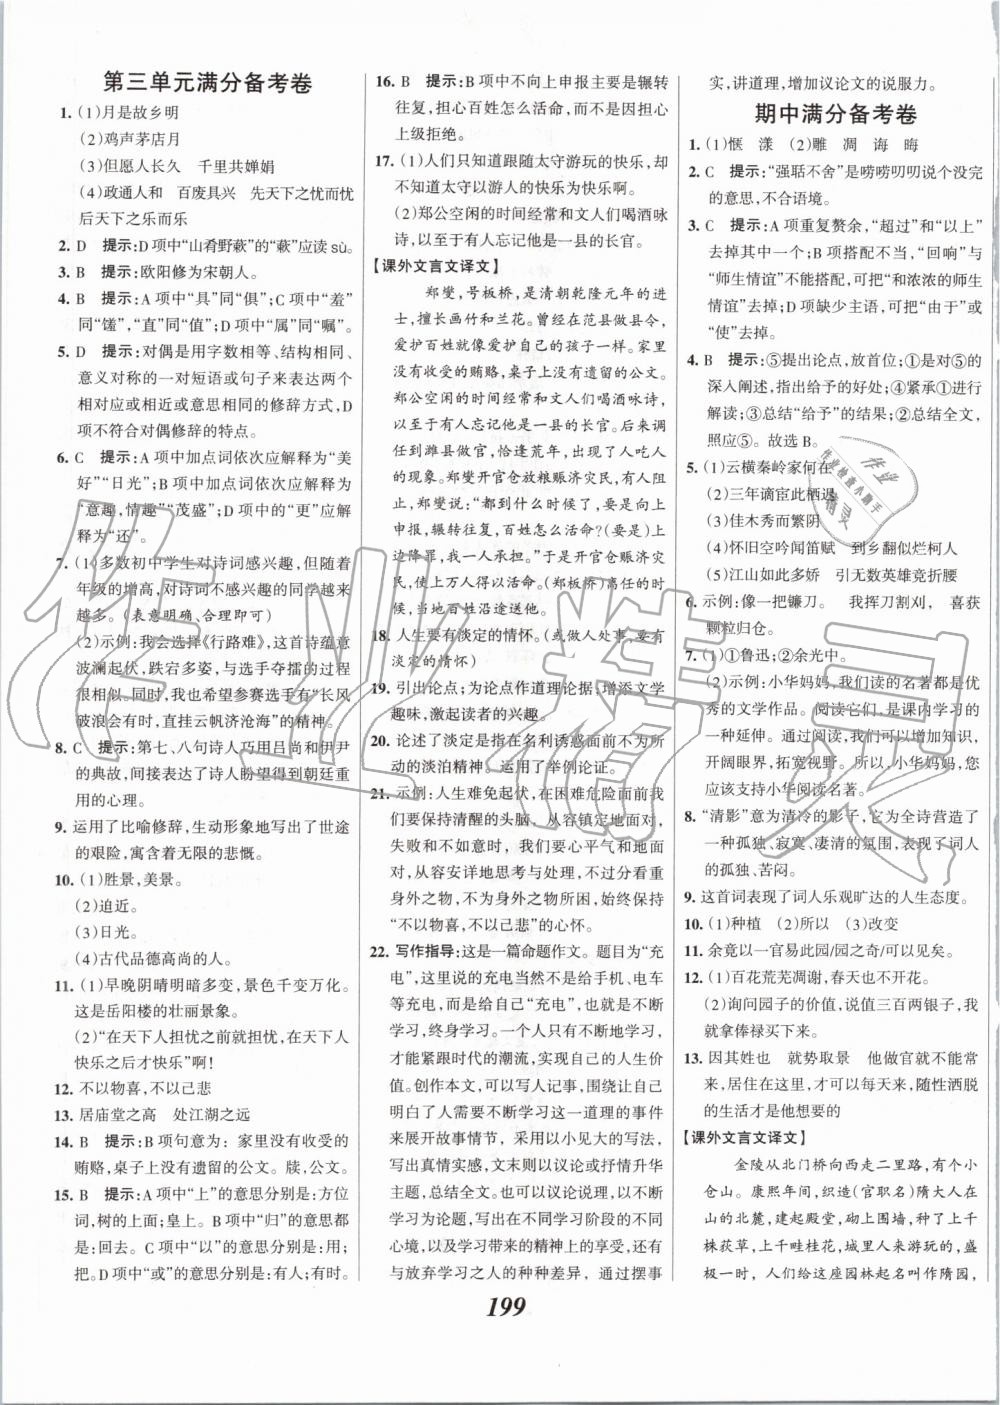 第三单元满分备考卷
1. (1)月是故乡明
(2)鸡声茅店月
(3)但愿人长久　千里共婵娟
(4)政通人和　百废具兴　先天下之忧而忧
后天下之乐而乐
2. D　提示:D项中“山肴野蔌”的“蔌”应读sù。
3. B　提示:欧阳修为宋朝人。
4. B　提示:A项中“具”同“俱”;C项中“羞”
同“馐”,“直”同“值”;D项中“属”同“嘱”。
5. D　提示:对偶是用字数相等、结构相同、
意义对称的一对短语或句子来表达两个
相对应或相近或意思相同的修辞方式,D
项不符合对偶修辞的特点。
6. C　提示:A项中加点词依次应解释为“美
好”“日光”;B项中加点词依次应解释为
“意趣,情趣”“茂盛”;D项中的“更”应解
释为“还”。
7. (1)多数初中学生对诗词感兴趣,但随着
年级的增高,对诗词不感兴趣的同学越来
越多。(表意明确、合理即可)
(2)示例:我会选择《行路难》,这首诗蕴意
波澜起伏,跌宕多姿,与选手夺擂的过程
很相似。同时,我也希望参赛选手有“长风
破浪会有时,直挂云帆济沧海”的精神。
8. C　提示:第七、八句诗人巧用吕尚和伊尹
的典故,间接表达了诗人盼望得到朝廷重
用的心理。
9. 运用了比喻修辞,生动形象地写出了世途
的艰险,寓含着无限的悲慨。
10. (1)胜景,美景。
(2)迫近。
(3)日光。
(4)古代品德高尚的人。
11. (1)早晚阴晴明暗多变,景色千变万化。
这是岳阳楼的壮丽景象。
(2)“在天下人担忧之前就担忧,在天下人
快乐之后才快乐”啊!
12. 不以物喜,不以己悲
13. 居庙堂之高　处江湖之远
14. B　提示:B项句意为:家里没有收受的
贿赂,桌子上没有遗留的公文。牍,公文。
15. B　提示:A项中“上”的意思分别是:方位
词,树的上面;皇上。B项中“归”的意思都
是:回去。C项中“以”的意思分别是:用;
把。D项中“或”的意思分别是:有人;有时。
16. B　提示:B项中不向上申报主要是辗转
往复,担心百姓怎么活命,而不是因担心
上级拒绝。
17. (1)人们只知道跟随太守游玩的快乐,却
不知道太守以游人的快乐为快乐啊。
(2)郑公空闲的时间经常和文人们喝酒咏
诗,以至于有人忘记他是一县的长官。
【课外文言文译文】
郑燮,号板桥,是清朝乾隆元年的进
士,擅长画竹和兰花。曾经在范县做县令,
爱护百姓就像爱护自己的孩子一样。家里
没有收受的贿赂,桌子上没有遗留的公文。
郑公空闲的时间经常和文人们喝酒咏诗,
以至于有人忘记他是一县的长官。后来调
任到潍县做官,恰逢荒年,出现了人吃人
的现象。郑燮开官仓放粮赈济灾民,有人
阻止,郑燮说:“都到什么时候了,若要向上
申报,辗转往复,百姓怎么活命?(要是)上
边降罪,我一人承担。”于是开官仓赈济灾
民,上万人得以活命。(郑板桥)离任的时
候,当地百姓沿途送他。
18. 人生要有淡定的情怀。(或做人处事,要有
淡定的情怀)
19. 引出论点;为论点作道理论据;增添文学
趣味,激起读者的兴趣。
20. 论述了淡定是指在名利诱惑面前不为所
动的淡泊精神。运用了举例论证。
21. 示例:人生难免起伏,在困难危险面前我
们要保持清醒的头脑。从容镇定地面对,
失败和不幸面前,我们要心平气和地面
对,从容安详地思考与处理。不过分看重
身外之物,不以身外之物所困,能够保持
“不以物喜,不以己悲”的心怀。
22. 写作指导:这是一篇命题作文。题目为“充
电”,这里说的充电当然不是给手机、电车
等充电,而是给自己“充电”,也就是不断
学习,终身学习。一个人只有不断地学习,
才能紧跟时代的潮流,实现自己的人生价
值。创作本文时,可以写人记事,围绕让自
己明白了需要不断学习这一道理的事件
来展开故事情节,采用以小见大的写法,
写出真情实感,文末则以议论抒情升华
主题,总结全文。也可以议论说理,以终身
学习为论题,写出不同学习阶段的不同
心境,以及学习带来的精神上的享受,还有
与放弃学习之人的种种差异,通过摆事
实,讲道理,增加议论文的说服力。
期中满分备考卷
1. (1)惬　漾　(2)雕　凋　诲　晦
2. C　提示:“强聒不舍”是唠唠叨叨说个没完
的意思,不合语境。
3. C　提示:A项重复赘余,“超过”和“以上”
去掉其中一个;B项搭配不当,“回响”与
“师生情谊”不能搭配,可把“和浓浓的师生
情谊”去掉;D项缺少主语,可把“由于”或
“使”去掉。
4. B　提示:⑤提出论点,放首位;①是对⑤的
深入阐述,指出给予的好处;④紧承①进行
解读;③总结“给予”的结果;②总结全文,
照应⑤。故选B。
5. (1)云横秦岭家何在
(2)三年谪宦此栖迟
(3)佳木秀而繁阴
(4)怀旧空吟闻笛赋　到乡翻似烂柯人
(5)江山如此多娇　引无数英雄竞折腰
6. 示例:像一把镰刀。　我挥刀割刈,　喜获
颗粒归仓。
7. (1)①鲁迅;②余光中。
(2)示例:小华妈妈,我们读的名著都是优
秀的文学作品。阅读它们,是课内学习的
一种延伸。通过阅读,我们可以增长知识,
开阔眼界,拓宽视野。所以,小华妈妈,您
应该支持小华阅读名著。
8. “清影”意为清冷的影子,它为全诗营造了
一种孤独、寂寥、凄清的氛围,表现了词人
的孤独、苦闷。
9. 这首词表现了词人乐观旷达的人生态度。
10. (1)种植　(2)所以　(3)改变
11. 余竟以一官易此园/园之奇/可以见矣。
12. (1)百花荒芜凋谢,春天也不开花。
(2)询问园子的价值,说值三百两银子,我
就拿俸禄买下来。
13. 因其姓也　就势取景　他做官就不能常
来,居住在这里,才可以天天来,随性洒脱
的生活才是他想要的
【课外文言文译文】
金陵从北门桥向西走二里路,有个小
仓山。康熙年间,织造(官职名)隋大人在
山的北麓,建起殿堂,砌上围墙,种上千
株荻草,上千畦桂花,城里人来游玩的,盛
极一时,人们给这座园林起名叫作隋园,
199
作业精灵
作业
作业检查小助手
精灵